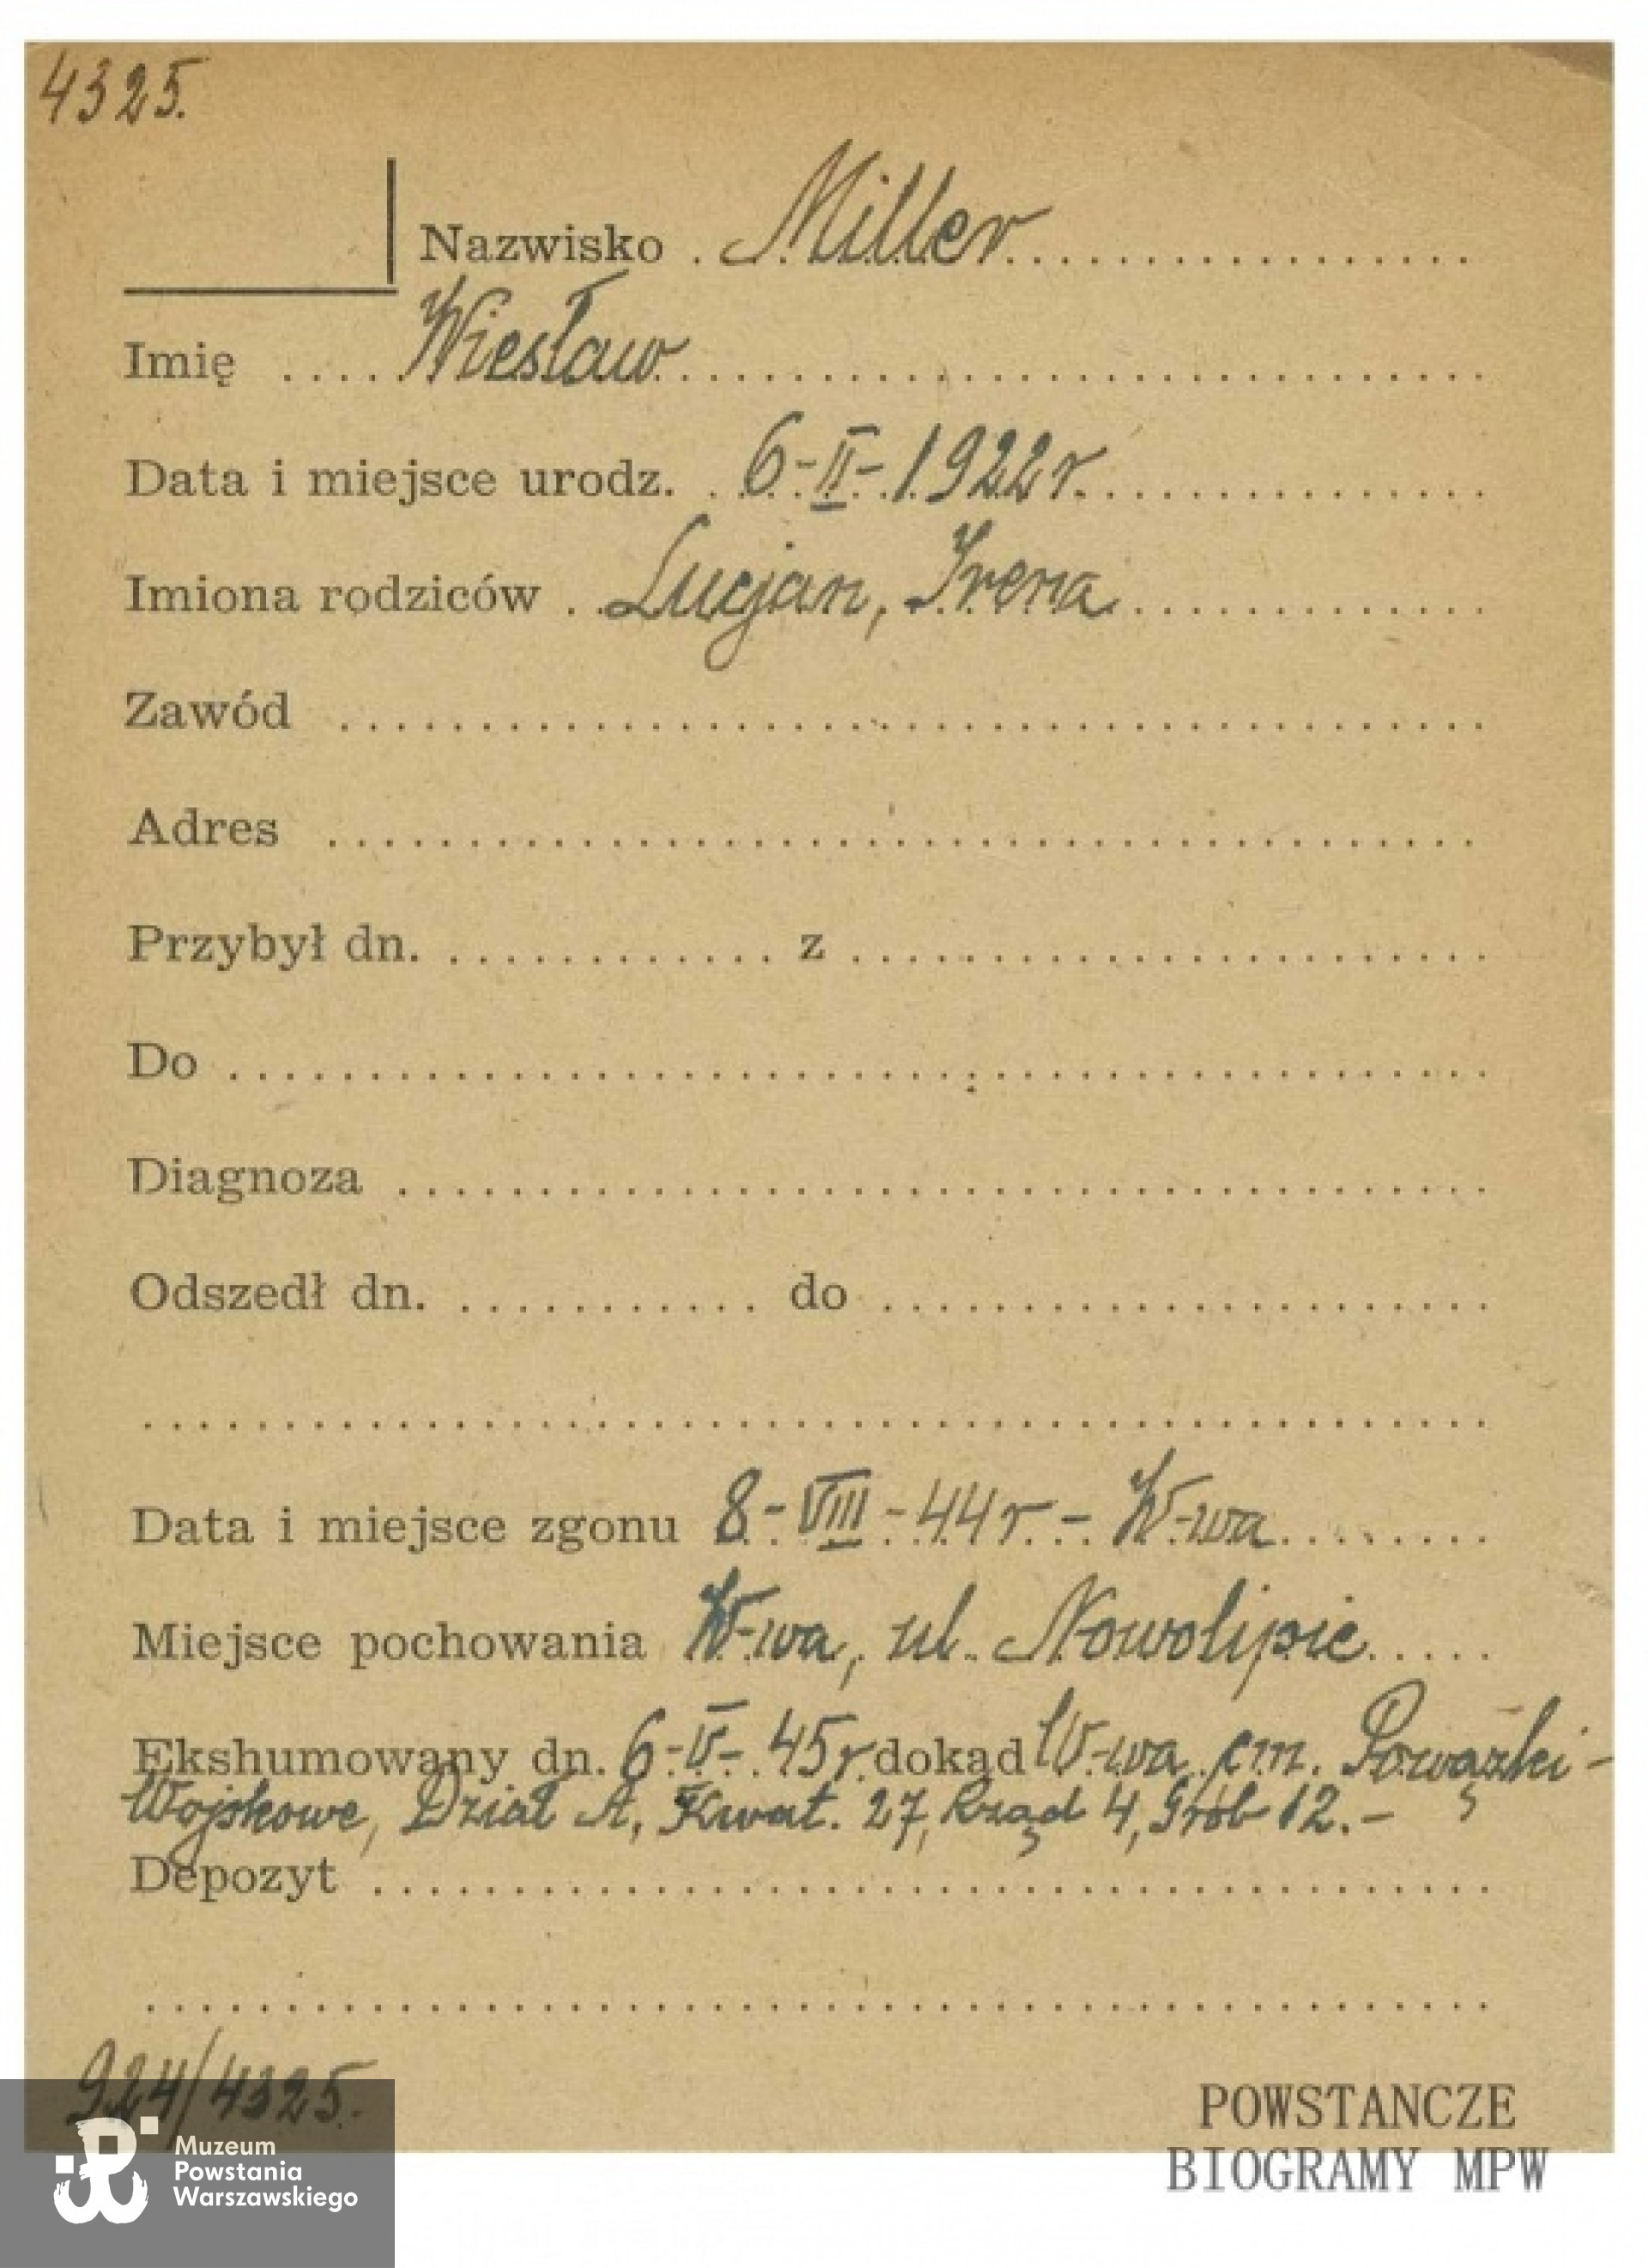 4325.
Nazwisko . Miller
Imię .... Wiesław
Data i miejsce urodz. . 6-II-1922r.
Imiona rodziców . Lucjan, Irena
Zawód
Adres
Przybył dn. ............ z
Do
Diagnoza
Odszedł dn. ........... do
Data i miejsce zgonu 8-VIII-44r.- W-wa
Miejsce pochowania W-wa, ul. Nowolipie
Ekshumowany dn. 6-V-45r dokąd W-wa cm. Powązki-
Wojskowe, Dział A, Kwat. 27, Rząd 4, Grób 12.-
Depozyt
924/4325.
Muzeum
Powstania
Warszawskiego
POWSTANCZE
BIOGRAMY MPW